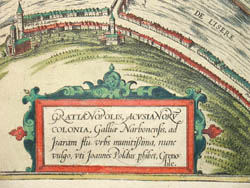 DE LISERA
GRATIANOPOLIS, ACVSIANORV
COLONIA, Galliæ Narbonensis, ad
Isaram flu: vrbs munitissima, nunc
vulgo, vti Joannes Poldus phibet, Greno
ble.